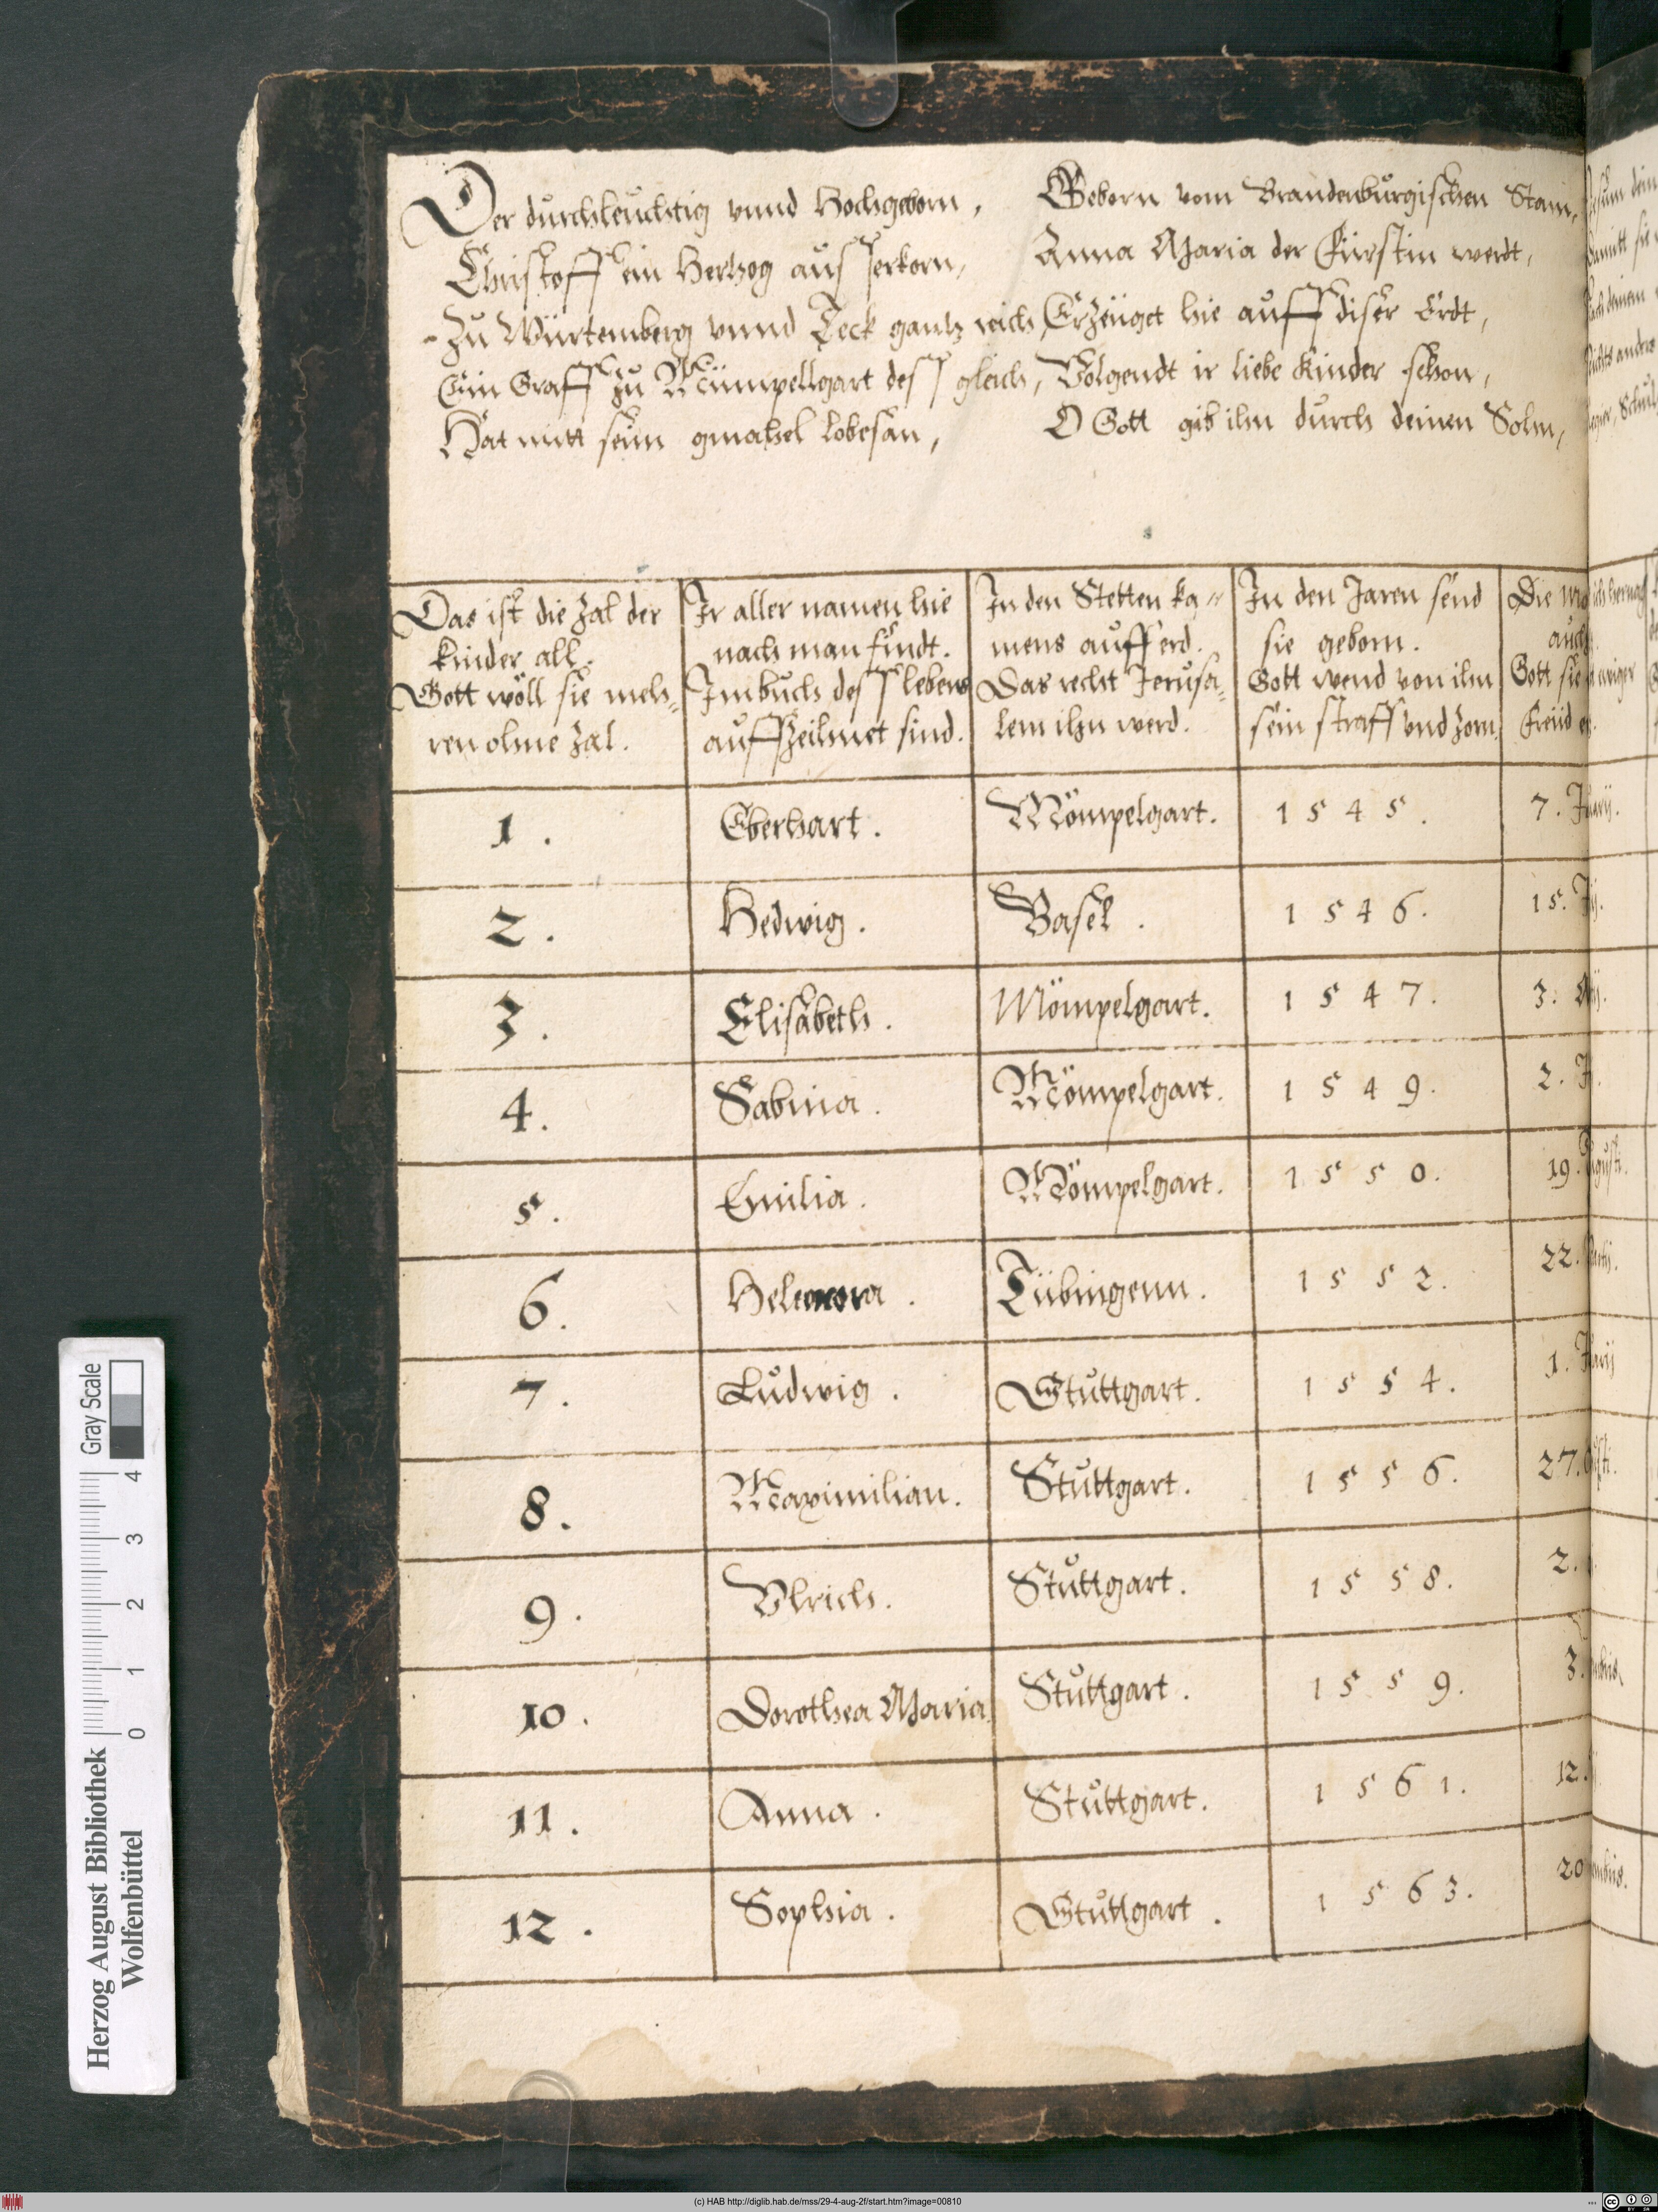 Der durchleuchtig vnnd Hochgeborn,
Christoff ein Hertzog ausserkorn,
Zu Würtemberg vnnd Teck gantz reich,
Ein Graff zu Mümpellgart dess gleich,
Hat mitt seim gmahel lobesan,
Geborn vom Brandenburgischen Stam,
Anna Maria der Fürstin werdt,
Erzeuget hie auff diser Erdt,
Volgendt ir liebe Kinder schon,
O Gott gib ihn durch deinen Sohn,
Das ist die Zal der
kinder all.
Gott wöll sie meh=
ren ohne Zal.
Ir aller namen hie
nach man findt.
Im buch dess lebens
auffzeihnet sind.
In den Stetten ka=
mens auff erd.
Das recht Jerusa=
lem ihn werd.
In den Jaren send
sie geborn.
Gott wend von ihn
sein straff vnd zorn.
Die
auch
Gott sie
freüd
1. Eberhart. Mömpelgart. 1545. 7.
2. Hedwig. Basel. 1546. 15.
3. Elisabeth. Mömpelgart. 1547. 3.
4. Sabina. Mömpelgart. 1549. 2.
5. Emilia. Mömpelgart. 1550. 19.
6. Heleonora. Tübingenn. 1552. 22.
7. Ludwig. Stuttgart. 1554. 1.
8. Maximilian. Stuttgart. 1556. 27.
9. Vlrich. Stuttgart. 1558. 2.
10. Dorothea Maria. Stuttgart. 1559. 3.
11. Anna. Stuttgart. 1561. 12.
12. Sophia. Stuttgart. 1563. 20
Herzog August Bibliothek
Wolfenbüttel
0 1 2 3 4
Gray Scale
(c) HAB http://diglib.hab.de/mss/29-4-aug-2f/start.htm?image=00810